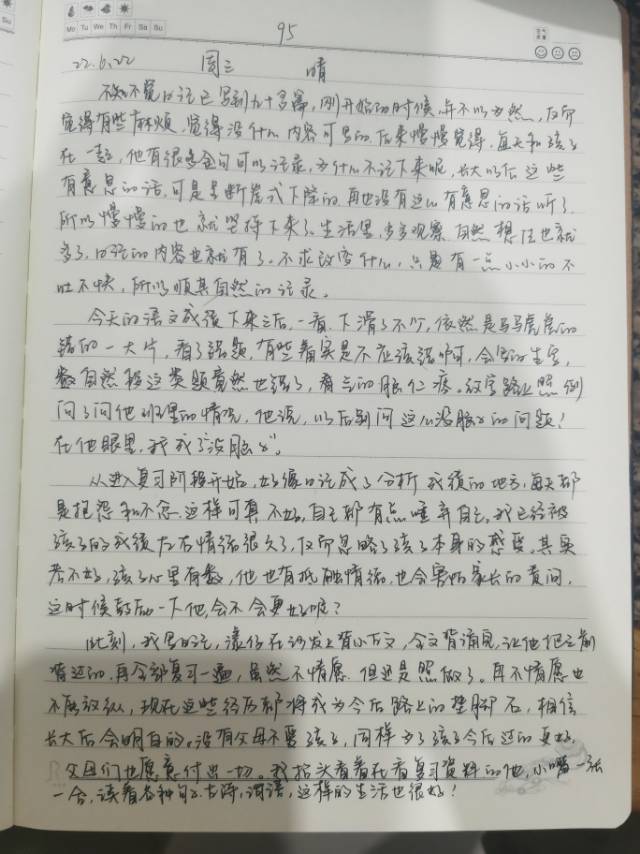 Mo Tu We Th Fr Sa Su
95
22.6.22 周三 晴
不知不觉日记已写到九十多篇，刚开始的时候并不以为然，反而
觉得有些麻烦，觉得没什么内容可写的，后来慢慢觉得，每天和孩子
在一起，他有很多金句可以记录，为什么不记下来呢，长大以后这些
有意思的话，可是呈断崖式下降的，再也没有这么有意思的话听了，
所以慢慢的也就坚持下来了。生活里多多观察，自然想法也就
多了，日记的内容也就有了。不求改变什么，只是有一点小小的不
吐不快，所以顺其自然的记录。
今天的语文成绩下来之后，一看，下滑了不少，依然是马马虎虎的
错的一大片，看了错题，有些着实是不应该错啊，会写的生字，
数自然段这类题竟然也错了，看之的脑仁疼。放学路上照例
问了问他班里的情况，他说，以后别问这么没脑子的问题！
在他眼里，我成了“没脑子”。
从进入复习阶段开始，好像日记成了分析成绩的地方，每天都
是抱怨和不念，这样可真不好，自己都有点唾弃自己。我已经被
孩子的成绩左右情绪很久了，反而忽略了孩子本身的感受。其实
考不好，孩子心里有数，他也有抵触情绪，也会害怕家长的责问，
这时候鼓励一下他，会不会更好呢？
此刻，我写日记，潇仔在沙发上背小古文，全文背诵完，让他把之前
背过的，再全部复习一遍，虽然不情愿，但还是照做了。再不情愿也
不能放纵，现在这些经历都将成为今后路上的垫脚石，相信
长大后会明白的。没有父母不爱孩子，同样为了孩子今后过的更好，
父母们也愿意付出一切。我抬头看着在看复习资料的他，小嘴一张
一合，读着各种句子、古诗、词语，这样的生活也很好！